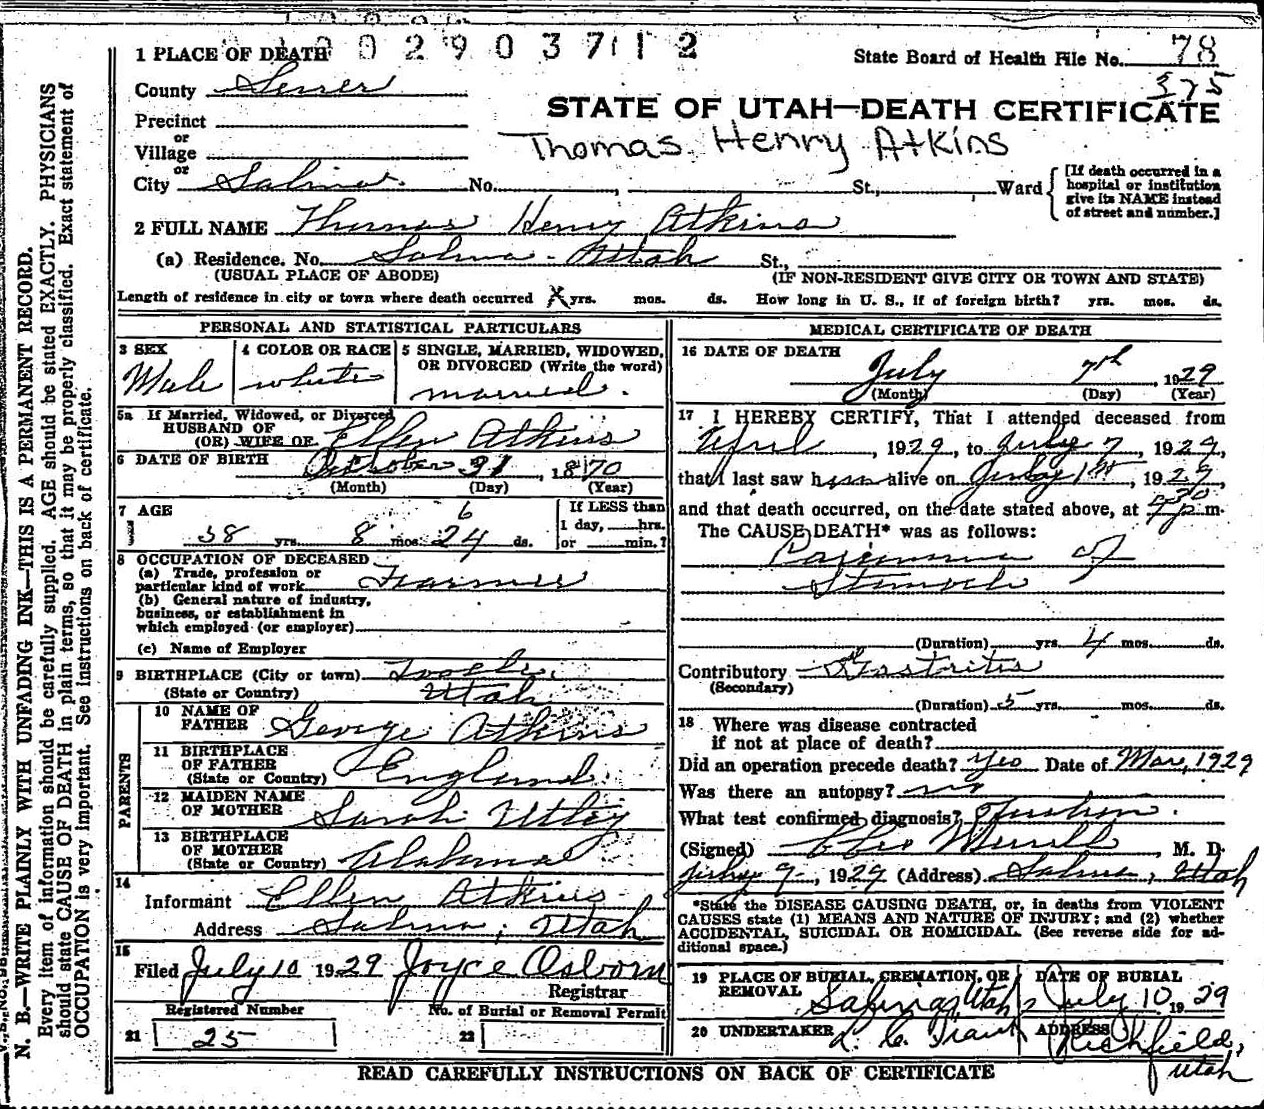 1 0 0 2 9 0 3 7 1 2
1 PLACE OF DEATH
State Board of Health File No. 78
375
County Sevier
STATE OF UTAH—DEATH CERTIFICATE
Precinct
or
Village
Thomas Henry Atkins
or
City Salina No. , St., Ward
[If death occurred in a
hospital or institution
give its NAME instead
of street and number.]
2 FULL NAME Thomas Henry Atkins
(a) Residence. No. Salina - Utah St.,
(USUAL PLACE OF ABODE) (IF NON-RESIDENT GIVE CITY OR TOWN AND STATE)
Length of residence in city or town where death occurred X yrs. mos. ds. How long in U. S., if of foreign birth? yrs. mos. ds.
PERSONAL AND STATISTICAL PARTICULARS
3 SEX
Male
4 COLOR OR RACE
white
5 SINGLE, MARRIED, WIDOWED,
OR DIVORCED (Write the word)
married.
5a If Married, Widowed, or Divorced
HUSBAND OF
(OR) WIFE OF Ellen Atkins
6 DATE OF BIRTH October 31, 1870
(Month) (Day) (Year)
7 AGE
58 yrs. 8 mos. 24 ds.
6
If LESS than
1 day, hrs.
or min.?
8 OCCUPATION OF DECEASED
(a) Trade, profession or
particular kind of work Farmer
(b) General nature of industry,
business, or establishment in
which employed (or employer)
(c) Name of Employer
9 BIRTHPLACE (City or town) Tooele,
(State or Country) Utah
PARENTS
10 NAME OF
FATHER George Atkins
11 BIRTHPLACE
OF FATHER
(State or Country) England.
12 MAIDEN NAME
OF MOTHER Sarah Utley
13 BIRTHPLACE
OF MOTHER
(State or Country) Alabama
14
Informant Ellen Atkins
Address Salina, Utah
15
Filed July 10 1929 Joyce Osborn
Registrar
Registered Number
21 25
No. of Burial or Removal Permit
22
MEDICAL CERTIFICATE OF DEATH
16 DATE OF DEATH
July 7th, 1929
(Month) (Day) (Year)
17 I HEREBY CERTIFY, That I attended deceased from
April, 1929, to July 7, 1929,
that I last saw him alive on July 1st, 1929,
and that death occurred, on the date stated above, at m.
The CAUSE DEATH* was as follows:
Carcinoma of
Stomach
(Duration) yrs. 4 mos. ds.
Contributory Gastritis
(Secondary)
(Duration) 5 yrs. mos. ds.
18 Where was disease contracted
if not at place of death?
Did an operation precede death? Yes Date of Mar, 1929
Was there an autopsy? no
What test confirmed diagnosis?
(Signed) Merrill, M. D.
July 9, 1929 (Address) Salina, Utah
*State the DISEASE CAUSING DEATH, or, in deaths from VIOLENT
CAUSES state (1) MEANS AND NATURE OF INJURY; and (2) whether
ACCIDENTAL, SUICIDAL OR HOMICIDAL. (See reverse side for ad-
ditional space.)
19 PLACE OF BURIAL, CREMATION, OR
REMOVAL Utah
DATE OF BURIAL
July 10 1929
20 UNDERTAKER L. C.
ADDRESS Richfield,
Utah
READ CAREFULLY INSTRUCTIONS ON BACK OF CERTIFICATE
N. B.—WRITE PLAINLY WITH UNFADING INK—THIS IS A PERMANENT RECORD.
Every item of information should be carefully supplied. AGE should be stated EXACTLY. PHYSICIANS
should state CAUSE OF DEATH in plain terms, so that it may be properly classified. Exact statement of
OCCUPATION is very important. See instructions on back of certificate.